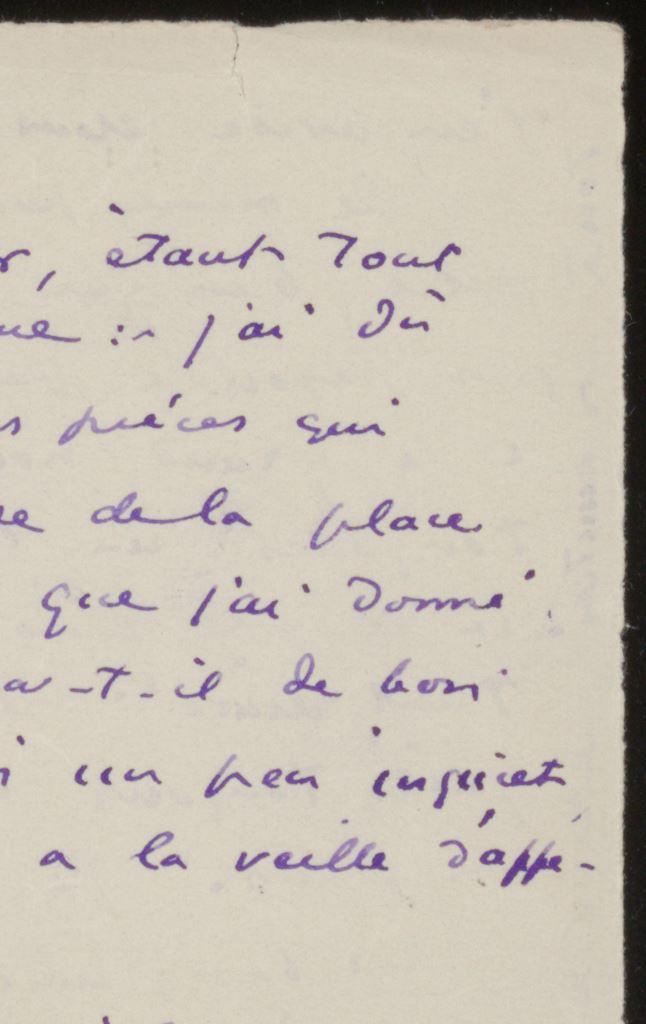 r, étant tout
ue :- j'ai dû
s pièces qui
re de la place
que j'ai donné.
a-t-il de bon
i un peu inquiet
a la veille d'appé-